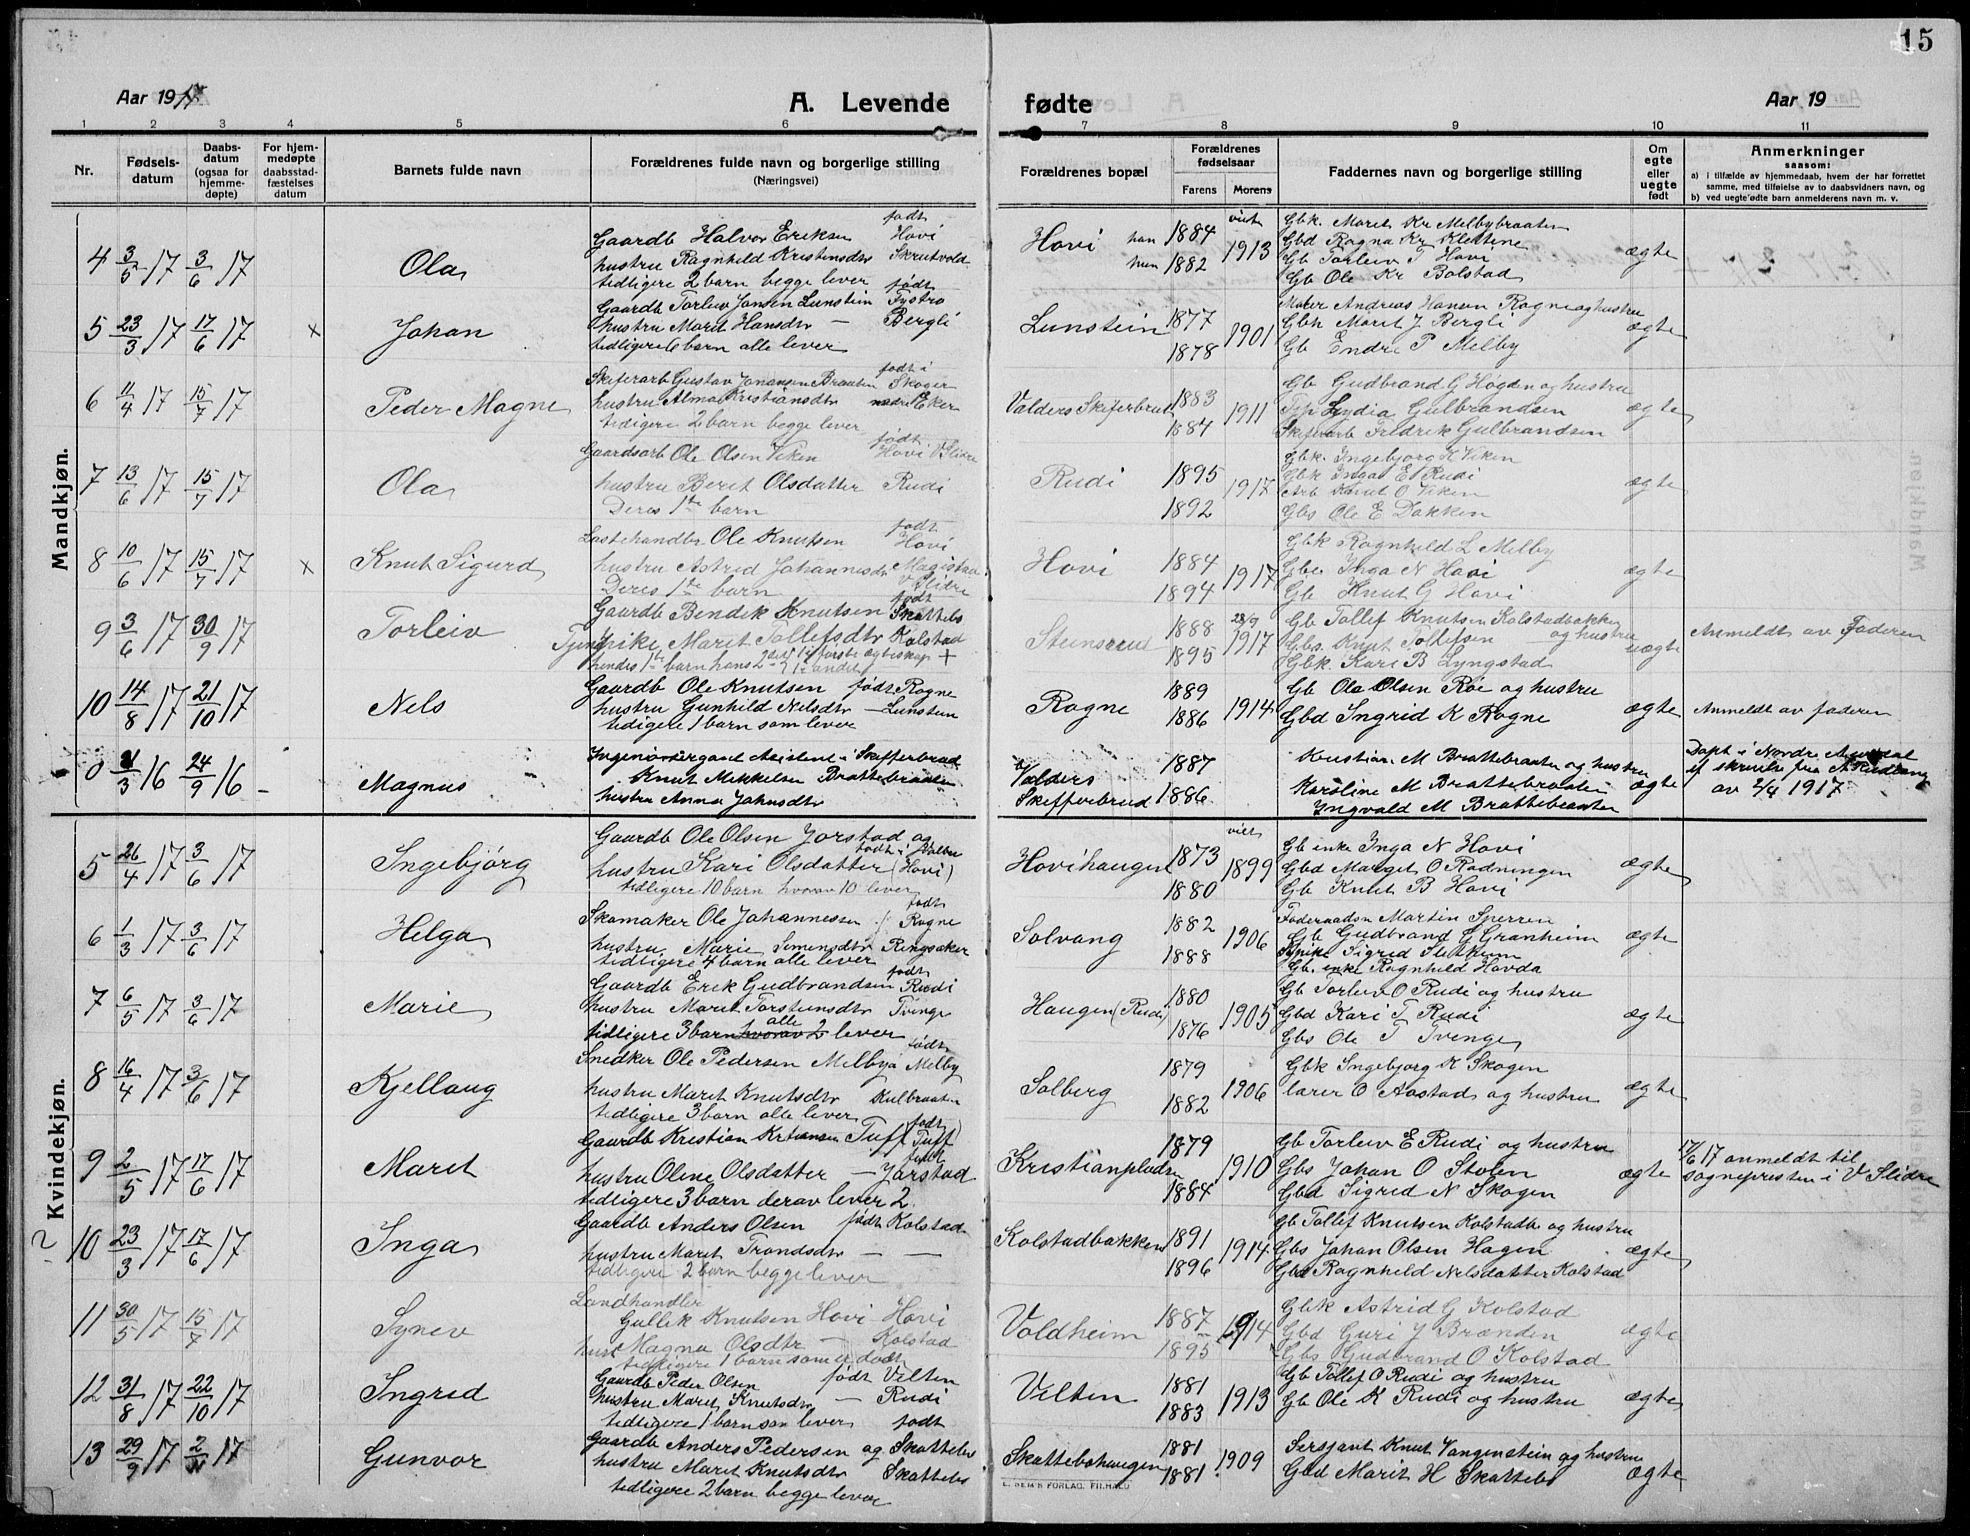 15
Aar 1917
A. Levende fødte
Aar 19
1 2 3 4 5 6 7 8 9 10 11
Nr.
Fødsels-
datum
Daabs-
datum
(ogsaa for
hjemme-
døpte)
For hjem-
medøpte
daabsstad-
fæstelses
datum
Barnets fulde navn
Forældrenes fulde navn og borgerlige stilling
(Næringsvei)
Forældrenes bopæl
Forældrenes
fødselsaar
Farens Morens
Faddernes navn og borgerlige stilling
Om
egte
eller
uegte
født
Anmerkninger
saasom:
a) i tilfælde av hjemmedaab, hvem der har forrettet
samme, med tilføielse av to daabsvidners navn, og
b) ved uegte fødte barn anmelderens navn m. v.
Mandkjøn.
4 3/5 17 3/6 17 Ola
Gaardb Halvor Eriksen født Hovi
hustru Ragnhild Kristensdtr Skrutvold
tidligere 2 barn begge lever
Hovi han 1884 hun 1882 viet 1913
Gbk. Marit Kr Melbybraaten
Gbd Ragna Kr Klettene
Gb Torleiv T Hovi
Gb Ole Kr Bolstad
ægte
5 23/3 17 17/6 17 x Johan
Gaardb Torleiv Jonsen Lunstein født Fystro
hustru Marit Hansdtr — Bergli
tidligere 6 barn alle lever
Lunstein 1877 1878 1901
Maler Andreas Hansen Rogne og hustru
Gbk Marit J Bergli
Gb Endre P Melby
ægte
6 11/4 17 15/7 17 Peder Magne
Skiferarb Gustav Johansen Braaten født i Skoger
hustru Alma Kristiansdtr nedre Eker
tidligere 2 barn begge lever
Valders Skiferbrud 1883 1884 1911
Gb Gudbrand G Høgden og hustru
Lydia Gulbrandsen
Skiferarb Fredrik Gulbrandsen
ægte
7 13/6 17 15/7 17 Ola
Gaardsarb Ole Olsen Viken født Hovi V Slidre
hustru Berit Olsdatter Rudi
Deres 1te barn
Rudi 1895 1892 1917
Gbk. Ingebjorg K Viken
Gbk Inga E Rudi
Arb Knut O Viken
Gbs Ole E Dokken
ægte
8 10/6 17 15/7 17 x Knut Sigurd
Ole Knutsen født Hovi
hustru Astrid Johannesdtr Magistad V Slidre
Deres 1te barn
Hovi 1884 1894 1917
Gbk Ragnhild L Melby
Inga N Hovi
Gb Knut G Hovi
ægte
9 3/6 17 30/9 17 Torleiv
Gaardb Bendik Knutsen født Skattebo
Marit Tollefsdtr Kolstad
hendes 1te barn
Steinsrud 1888 1895 28/9 1917
Gb Tollef Knutsen Kolstadbakken og hustru
Gbs. Knut Tollefsen
Gbk. Kari B Lyngstad
uægte
Anmeldt av Faderen
10 14/8 17 21/10 17 Nels
Gaardb Ole Knutsen født Rogne
hustru Gunhild Nilsdtr — Lunstein
tidligere 1 barn som lever
Rogne 1889 1886 1914
Gb Ola Olsen Røe og hustru
Gbd Ingrid K Rogne
ægte
Anmeldt av faderen
0 21/3 16 24/9 16 – Magnus
Knut Mikkelsen Brattebraaten
hustru Anna Johnsdtr
Valders Skifferbrud 1887 1886
Kristian M Brattebraaten og hustru
Karoline M Brattebraaten
Ingvald M Brattebraaten
ægte
Døpt i Nordre Aurdal
av 2/4 1917
Kvindekjøn.
5 26/4 17 3/6 17 Ingebjørg
Gaardb Ole Olsen Jorstad og
hustru Kari Olsdatter (Hovi)
tidligere 10 barn hvorav 10 lever
Hovihaugen 1873 1880 viet 1899
Gb enke Inga N Hovi
Gbd Margit O Rødningen
Gb Knut B Hovi
ægte
6 1/3 17 3/6 17 Helga
Skomaker Ole Johannessen født Rogne
hustru Marie Simensdtr Ringsaker
tidligere 4 barn alle lever
Solvang 1882 1888 1906
Føderaadsm Martin Sperren
Gb Gudbrand G Granheim
Pike Sigrid Slettum
Gb. enke Ragnhild Hovda
ægte
7 6/5 17 3/6 17 Marie
Gaardb Erik Gudbrandsen født Rudi
hustru Marit Torstensdtr Tvenge
tidligere 3 barn hvorav 2 alle lever
Haugen (Rudi) 1880 1876 1905
Gb Torleiv O Rudi og hustru
Gbd Kari T Rudi
Gbs Ole T Tvenge
ægte
8 16/4 17 3/6 17 Kjellaug
Snedker Ole Pedersen Melbya født Melby
hustru Marit Knutsdtr Kulbraaten
tidligere 3 barn alle lever
Solberg 1879 1882 1906
Gbk Ingebjørg K Skogen
lærer O Aastad og hustru
ægte
9 2/5 17 17/6 17 Marit
Gaardb Kristian Kristiansen Tuff (født Tuff)
hustru Oline Olsdatter — født Jorstad
tidligere 3 barn derav lever 2.
Kristianpladsn 1879 1884 1910
Gb Torleiv E Rudi og hustru
Gbs Johan O Stolen
Gbd Sigrid N Skogen
ægte
17/6 17 anmeldt til
sognepresten i V Slidre
10 23/3 17 17/6 17 Inga
Gaardb Anders Olsen født Kolstad
hustru Marit Trondsdtr — —
tidligere 2 barn begge lever
Kolstadbakken 1891 1896 1914
Gb Tollef Knutsen Kolstadb og hustru
Gbs Johan Olsen Hagen
Gbd Ragnhild Nelsdatter Kolstad
ægte
11 30/5 17 15/7 17 Synev
Landhandler
Gullik Knutsen Hovi Hovi
hust Magna Olsdtr — Kolstad
tidligere 1 barn som er dødt
Voldheim 1887 1895 1914
Gbk Astrid G Kolstad
Gbd Guri J Brænden
Gbs Gudbrand O Kolstad
ægte
12 31/8 17 22/10 17 Ingrid
Gaardb Peder Olsen født Velten
hustru Marit Knutsdtr — Rudi
tidligere 1 barn som lever
Velten 1881 1883 1913
Gb Tollef O Rudi og hustru
Gb Ole K Rudi og hustru
ægte
13 29/9 17 2/11 17 Gunvor
Gaardb Anders Pedersen og født Skattebo
hustru Marit Knutsdtr Skattebo
tidligere 2 barn begge lever
Skattebohaugen 1881 1881 1909
Sersjant Knut Vangenstein og hustru
Gbd Marit H Skattebo
ægte